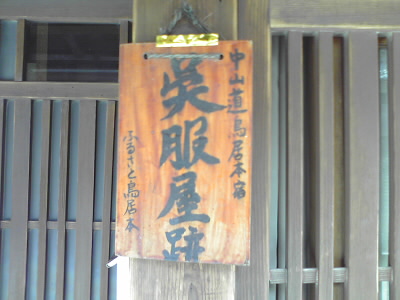 中山道鳥居本宿
呉服屋跡
ふるさと鳥居本